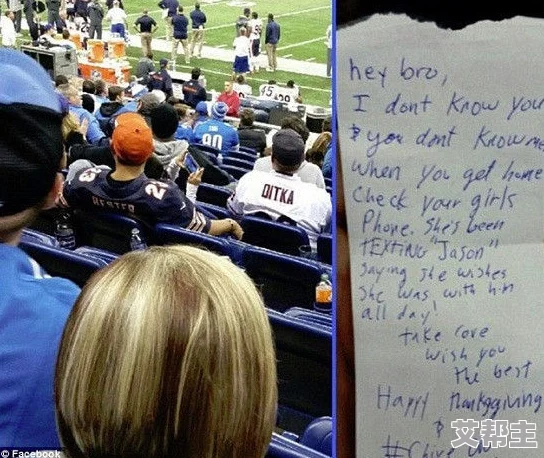 hey bro,
I dont know you
& you dont know me
when you get home
check your girls
Phone. She's been
TEXTING "Jason"
saying she wishes
she was with him
all day!
take care
wish you
the best
Happy Thanksgiving
&
#Chive On
HESTER
23
DITKA
90
45
© Facebook
艾邦主